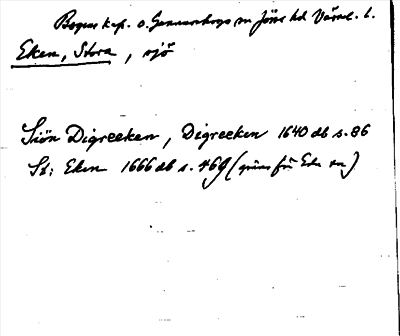 Bogens kap. o. Gunnarskogs sn Jösse hd Värml. l.
Eken, Stora, sjö
Siön Digreeken, Digreeken 1640 db s. 86
St: Eken 1666 db s. 469 (gräns för Eda sn)